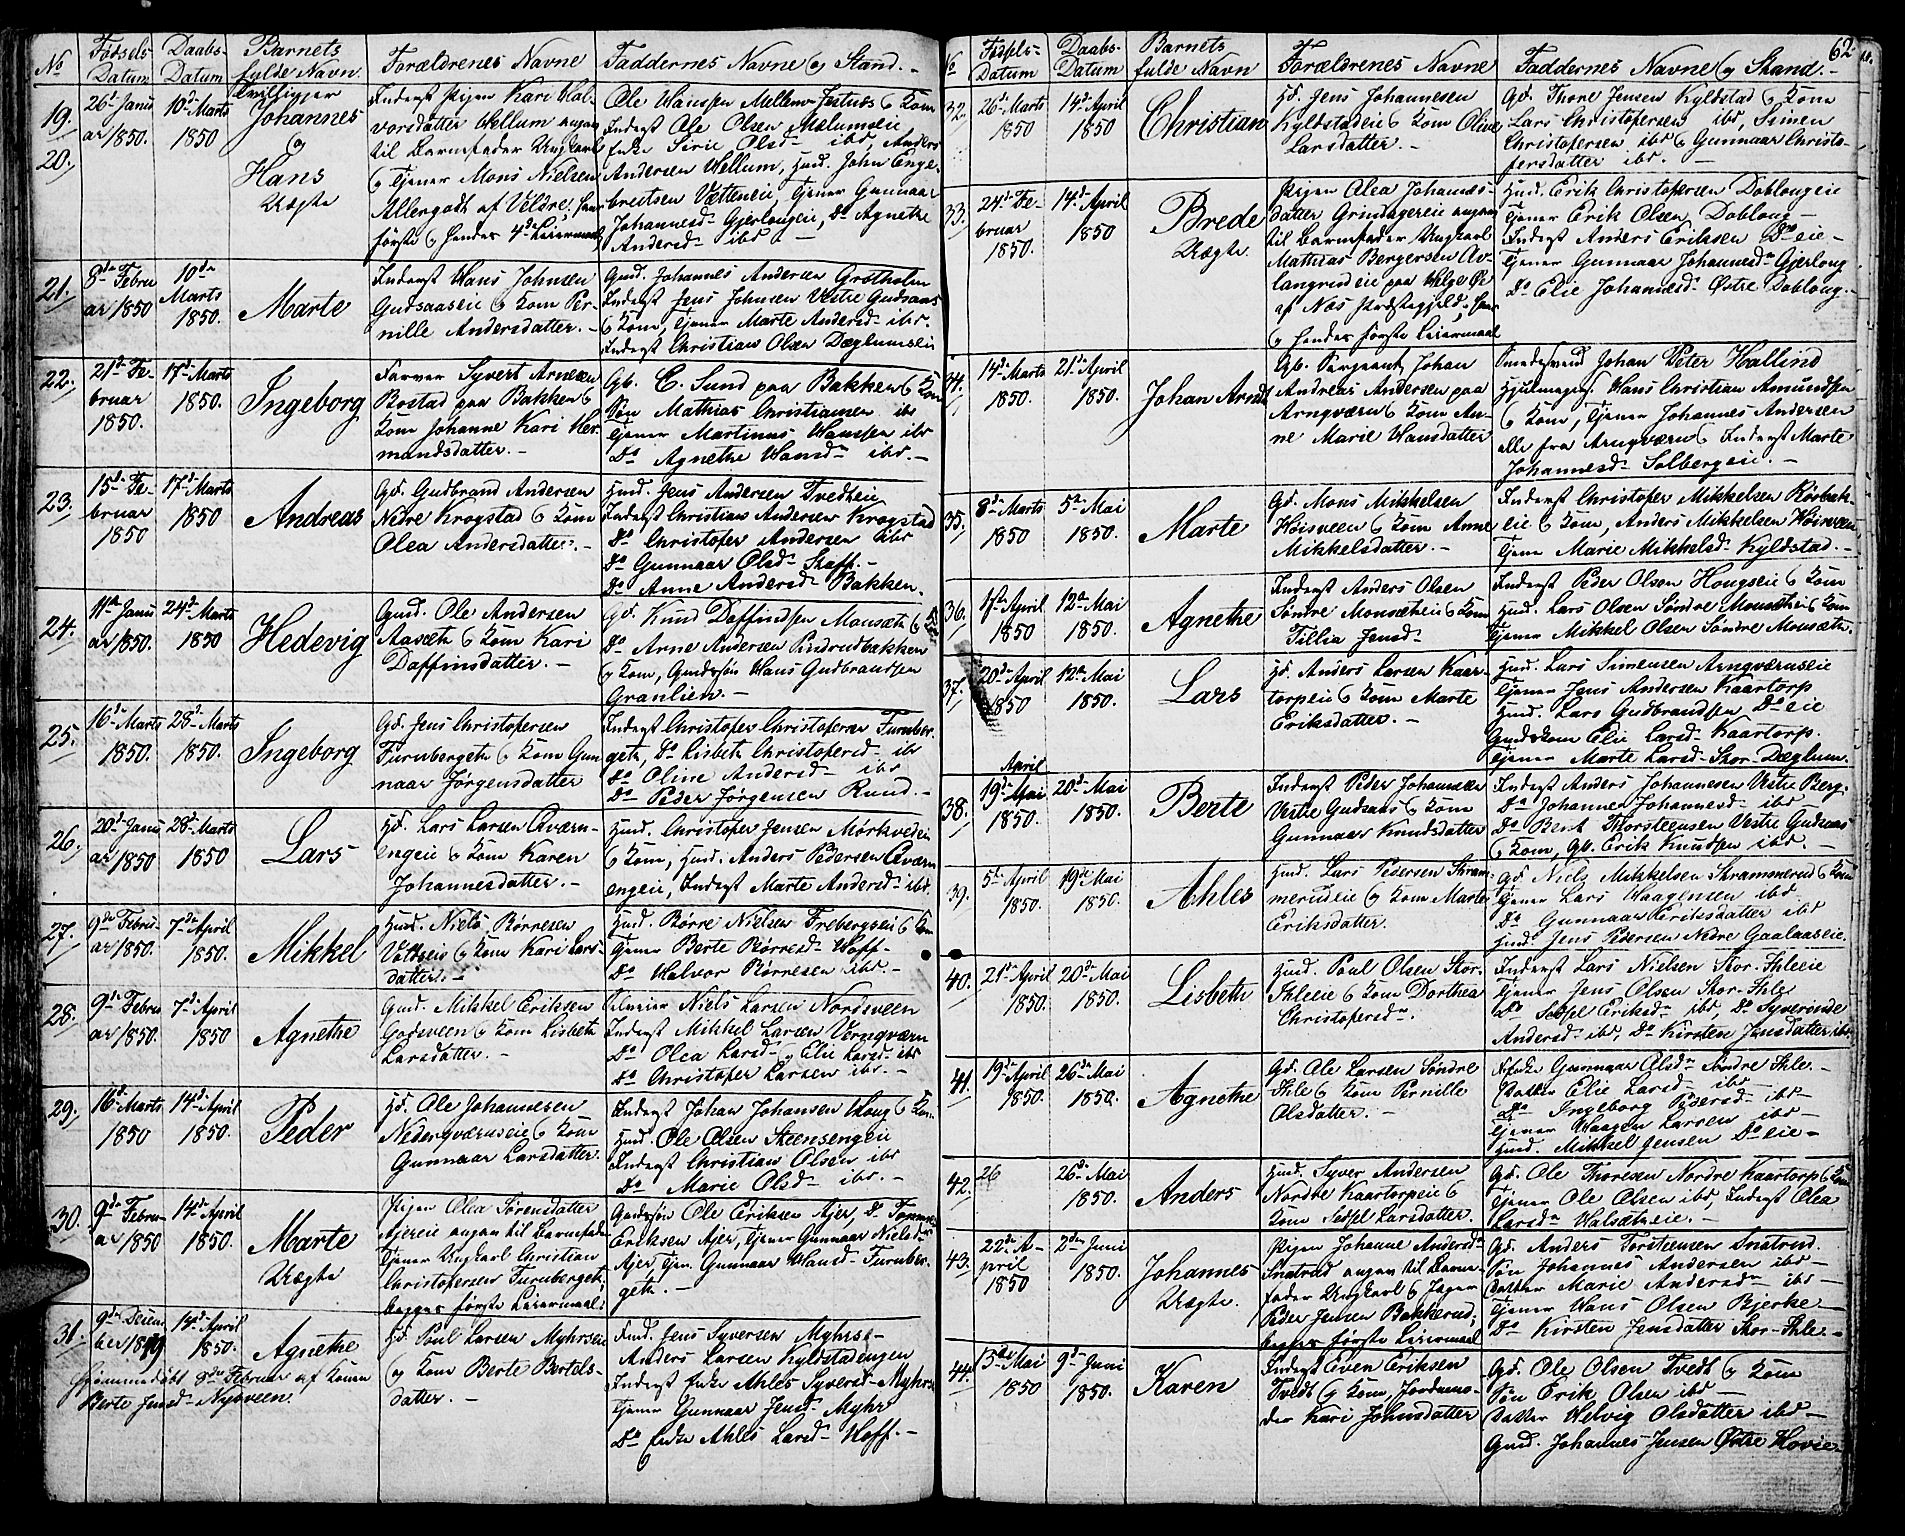 No
Fødsels-
Datum
Daabs-
Datum
Barnets
fulde Navn
Forældrenes Navne
Faddernes Navne og Stand. -
19.
20.
26d Janu
ar 1850.
10d Marts
1850
Tvillinger
Johannes
og
Hans
Uægte
Inderst Pigen Kari Hal-
vorsdatter Vellum angav
til Barnefader Ungkarl
og Tjener Mons Nielsen
Allergodt af Veldre, hans
første og hendes 4de Leiermaal
Ole Hanssen Mellem
Inderst Ole Olsen
Enke Sirie Olsd- ibd, Anders
Andersen Vellum, Huusm. John Enge-
bretsen Vætteneie, Tjener Gunnaar
Johannesd- Gjerlougeie, Do Agnethe
Andersd- ibd -
21.
8de Febru
ar 1850
10de
Marts
1850.
Marte
Inderst Hans Johnsen
Gudsaaseie og Kone Per-
nille Andersdatter. -
Gmd. Johannes Andersen Grøtholm
Inderst Jens Johnsen Vestre Gudsaas
og Kone, Tjener Marte Andersd- ibd.
Inderst Christian Olsen Dæglumseie
22.
21de Fe-
bruar
1850.
17d Marts
1850.
Ingeborg
Farver Syvert Arnesen
Bostad paa Bakken og
Kone Johanne Kari Her-
mandsdatter. -
Gb. C. Sund paa Bakken og Kone
Søn Mathias Christiansen ibd
Tjener Martinus Hanssen ibd
Do Agnethe Hansd- ibd. -
23.
15de Fe-
bruar
1850
17d Marts
1850
Andreas
Gd. Gudbrand Andersen
Nedre Krogstad og Kone
Olea Andersdatter. -
Huusm. Jens Andersen Tvedteie
Inderst Christian Andersen Krogstad
Do Christofer Andersen ibd
Do Gunnaar Olsd- Skaff. -
Do Anne Andersd- Bakken.
24.
11te Janu
ar 1850.
24d Marts
1850
Hedevig
Gmd. Ole Andersen
Aasæth og Kone Kari
Daffinsdatter. -
Gd. Knud Daffindsen Monsæth og Kone
Do Arne Andersen Rudsbakken
og Kone, Gaardssøn Hans Gudbrandsen
Granlien. -
25.
16d Marts
1850.
28d Marts
1850.
Ingeborg
Gd. Jens Christofersen
Furuberget og Kone Gun
naar Jørgensdatter
Inderst Christofer Christofersen Furuber-
get, Do Lisbeth Christofersd- ibd
Do Oline Andersd- ibd
Do Peder Jørgensen Rund. -
26.
20d Janu
ar 1850
28d Marts
1850
Lars
Hd. Lars Larsen Qværn-
engeie og Kone Karen
Johannesdatter. -
Huusm. Christofer Jensen Mørkvedeie
og Kone, Huusm. Anders Pedersen Qværn
engeie, Inderst Marte Andersd- ibd.
27.
9de Febru
ar 1850.
7de April
1850.
Mikkel
Huusm. Niels Børresen
og Kone Kari Lars-
datter. -
Huusm. Børre Nielsen Frebergseie og Kone
Tjener Berte Børresd- Hoff-
Do Halvor Børresen ibd. -
28.
9de Febru
ar 1850.
7de April
1850
Agnethe
Gmd. Mikkel Eriksen
Godsveen og Kone Lisbeth
Larsdatter. -
Niels Larsen Nordsveen
Inderst Mikkel Larsen
Do Olea Larsd- og Elie Larsd- ibd
Do Christofer Larsen ibd. -
29.
16d Marts
1850
14d April
1850.
Peder
Hd. Ole Johannesen
Nederqværnseie og Kone
Gunnaar Larsdatter.
Inderst Johan Johansen Houg og Kone
Huusm. Ole Olsen Steensengeie
Inderst Christian Olsen ibd
Do Marie Olsd- ibd. -
30.
9de Febru
ar 1850
14d April
1850.
Marte
Uægte
Pigen Olea Sørensdatter
Ajereie angav til Barnefader
Tjener Ungkarl Christian
Christofersen Furuberget,
begges første Leiermaal.
Gaardssøn Ole Eriksen Ajer, Do
Eriksen Ajer, Tjener Gunnaar Nielsd-
Ajer, Tjen. Gunnaar Hansd- Furuber-
get. -
31.
9de Decem
ber 1849
14d April
1850.
Agnethe
Hjemmedøbt 8de Februar af Konen
Berte Jensd- Nysveen.
Hd. Poul Larsen Myhrseie
og Kone Berte Bertels-
datter. -
Huusm. Jens Syversen Myhrs-
Anders Larsen Kyldstadengen
Inderst Enke Ahles Syversd- Myhrs
Tjener Gunnaar Jensd- Myhr
Do Enke Ahles Larsd- Hoff. -
62.
No
Fødsels-
Datum
Daabs-
Datum
Barnets
fulde Navn
Forældrenes Navne
Faddernes Navne og Stand. -
32.
26d Marts
1850
14d April
1850
Christian
Hd. Jens Johannesen
Kyldstadeie og Kone Olive
Larsdatter. -
Gd. Thore Jensen Kyldstad og Kone
Lars Christofersen ibd, Simen
Christofersen ibd og Gunnaar Christo-
fersdatter ibd. -
33.
24de Fe-
bruar
1850.
14d April
1850
Brede
Uægte
Pigen Olea Johannes-
datter Grindagereie angav
til Barnefader Ungkarl
Mathias Bergersen Av-
langrudeie paa Helgøe
af Næs Præstegjeld, hans
og hendes første Leiermaal
Huusm. Erik Christofersen Doblougeie
Tjener Erik Olsen Doblong -
Inderst Anders Eriksen Do eie -
Tjener Gunnaar Johannesd- Gjerloug
Do Elie Johannesd- Østre Doblong. -
34.
14d Marts
1850.
21d April
1850.
Johan Arndt
Gb. Sergeant Johan
Andreas Andersen paa
Arnqværn og Kone An-
ne Marie Hansdatter
Smedesvend Johan Peter Hallind
Hjulmager Hans Christian Amundsen
og Kone, Tjener Johannes Andersen
alle fra Arnqværn og Inderst Marte
Johannesd- Solbergeie. -
35.
8de Marts
1850
5te Mai
1850.
Marte
Gd. Mons Mikkelsen
Høisveen og Kone Anne
Mikkelsdatter. -
Inderst Christofer Mikkelsen Rørbæk-
eie og Kone, Anders Mikkelsen Høisveen
Tjener Marie Mikkelsd- Kyldstad. -
36.
17de April
1850
12te Mai
1850.
Agnethe
Inderst Anders Olsen
Søndre Monsætheie og Kone
Tillia Jensd-
Inderst Peder Olsen Hougseie og Kone
Huusm. Lars Olsen Søndre Monsætheie og Kone
Tjener Mikkel Olsen Søndre Monsæth.
37.
20de April
1850
12te Mai
1850.
Lars
Hd. Anders Larsen Kaar-
torpeie og Kone Marte
Eriksdatter. -
Huusm. Lars Simensen Arnqværnseie
Tjener Jens Andersen Kaartorp
Huusm. Lars Gudbrandsen Do eie
Gaardskone Elie Larsd- Kaartorp.
Tjener Marte Larsd- Stor-Dæglum.
38.
April
19d Mai
1850.
20de Mai
1850.
Berte
Inderst Peder Johannesen
Vestre Gudsaas og Kone
Gunnaar Knudsdatter
Inderst Anders Johannesen Vestre Berg.
Do Johanne Johannesd- ibd
Do Bent Thorsteensen Vestre Gudsaas
og Kone, Gb. Erik Knudsen ibd. -
39.
5te April
1850.
19de Mai
1850.
Ahles
Huusm. Lars Pedersen Skram-
merudeie og Kone Marte
Eriksdatter.
Gd. Niels Mikkelsen Skrammerud og Kone
Tjener Lars Haagensen ibd
Do Gunnaar Eriksdatter ibd
Huusm. Jens Pedersen Nedre Gaalaaseie.
40.
21de April
1850.
20de Mai
1850.
Lisbeth
Huusm. Poul Olsen Stor-
Ihleeie og Kone Dorthea
Christofersd-.
Inderst Lars Nielsen Stor-Ihleeie
Tjener Jens Olsen Stor-Ihle
Do Sidsel Eriksd- ibd, Do Syverinde
Andersd- ibd, Do Kirsten Jensdatter ibd.
41.
19de April
1850.
26de Mai
1850.
Agnethe
Gd. Ole Larsen Søndre
Ihle og Kone Pernille
Olsdatter. -
Enke Gunnaar Olsd- Søndre Ihle. -
Datter Elie Larsd- ibd -
Do Ingeborg Pedersd- ibd -
Tjener Haagen Larsen ibd -
Huusm. Mikkel Jensen Do eie -
42.
26
26de Mai
1850.
Anders
Huusm. Syver Andersen
Nordre Kaartorpeie og
Kone Sidsel Larsdatter.
Gd. Ole Thoresen Nordre Kaartorp og Kone
Tjener Ole Olsen ibd, Inderst Olea
Larsd- Halsætheie. -
43.
22de A-
pril
1850
2den Juni
1850.
Johannes
Uægte.
Pigen Johanne Andersd-
Snatrud angav til Barne-
fader Ungkarl og Jæger
Peder Jensen Bakkerud,
begges første Leiermaal
Gd. Anders Torstensen Snatrud.
Søn Johannes Andersen ibd -
Datter Marie Andersd- ibd -
Tjener Hans Olsen Bjerke -
Do Kirsten Jensdatter Stor-Ihle. -
44.
13de Mai
1850
9de Juni
1850.
Karen
Inderst Even Eriksen
Tvedt og Kone, Jordmo-
der Kari Johnsdatter
Gd. Ole Olsen Tvedt og Kone
Søn Erik Olsen ibd -
Datter Helvig Olsdatter ibd -
Gmd. Johannes Jensen Østre Hovie -